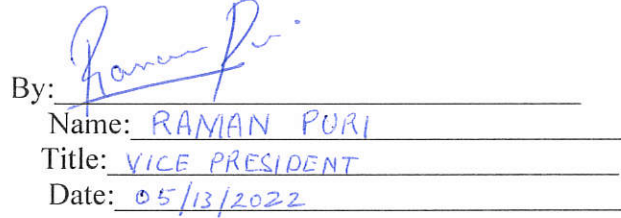 By: Raman Puri
Name: RAMAN PURI
Title: VICE PRESIDENT
Date: 05/13/2022